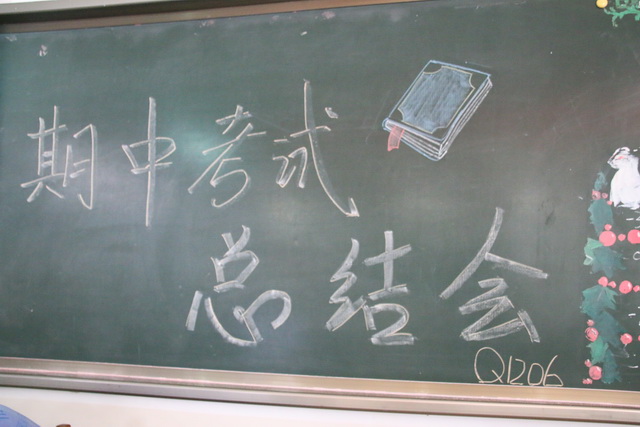 期中考试
总结会
Q1206